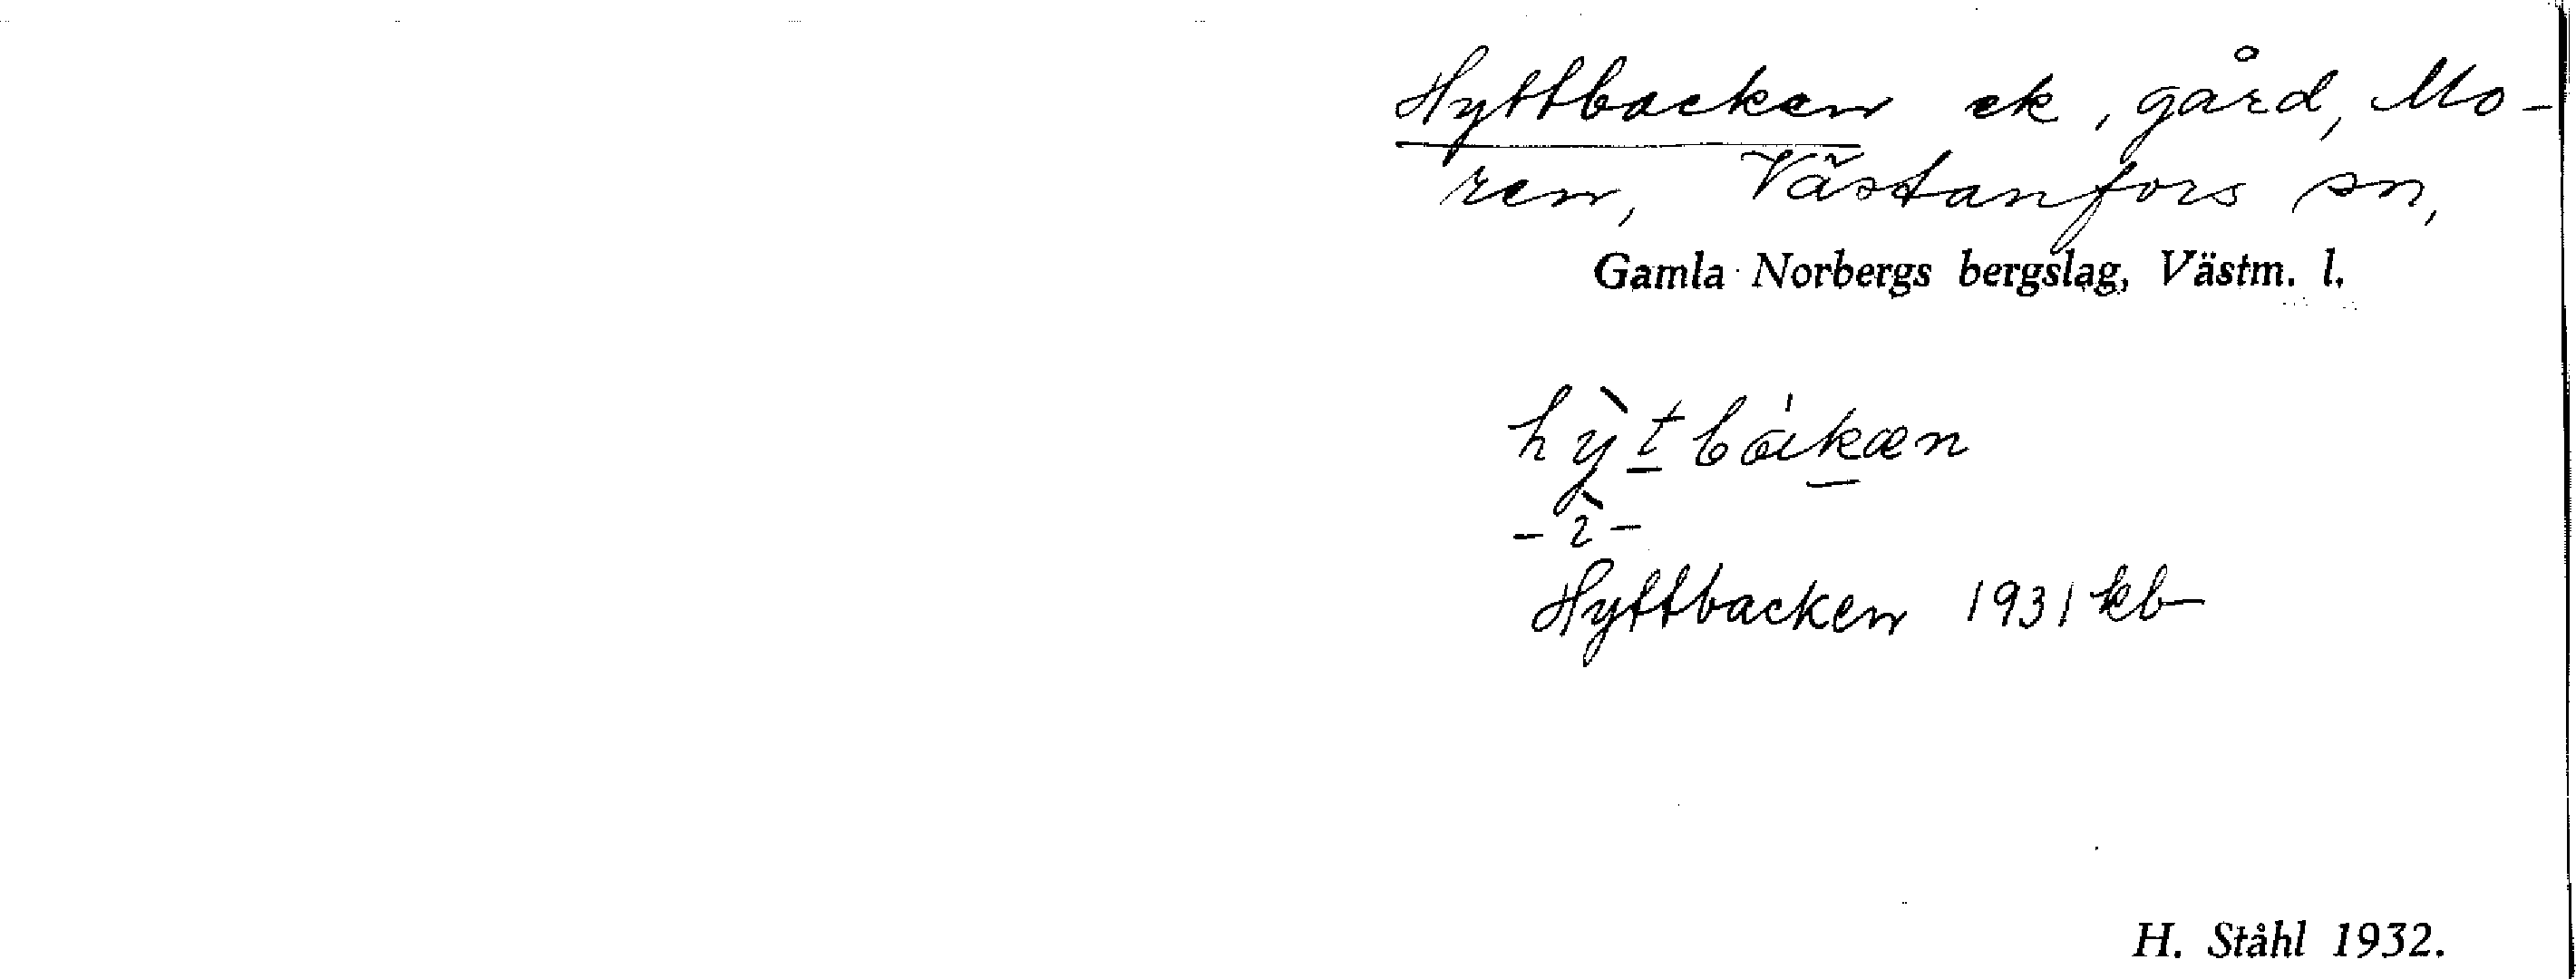 Hyttbacken ek, gård, Mo-
ren, Västanfors sn,
Gamla Norbergs bergslag, Västm. l.
hỳtbákæn
-ì-
Hyttbacken 1931 kb
H. Ståhl 1932.